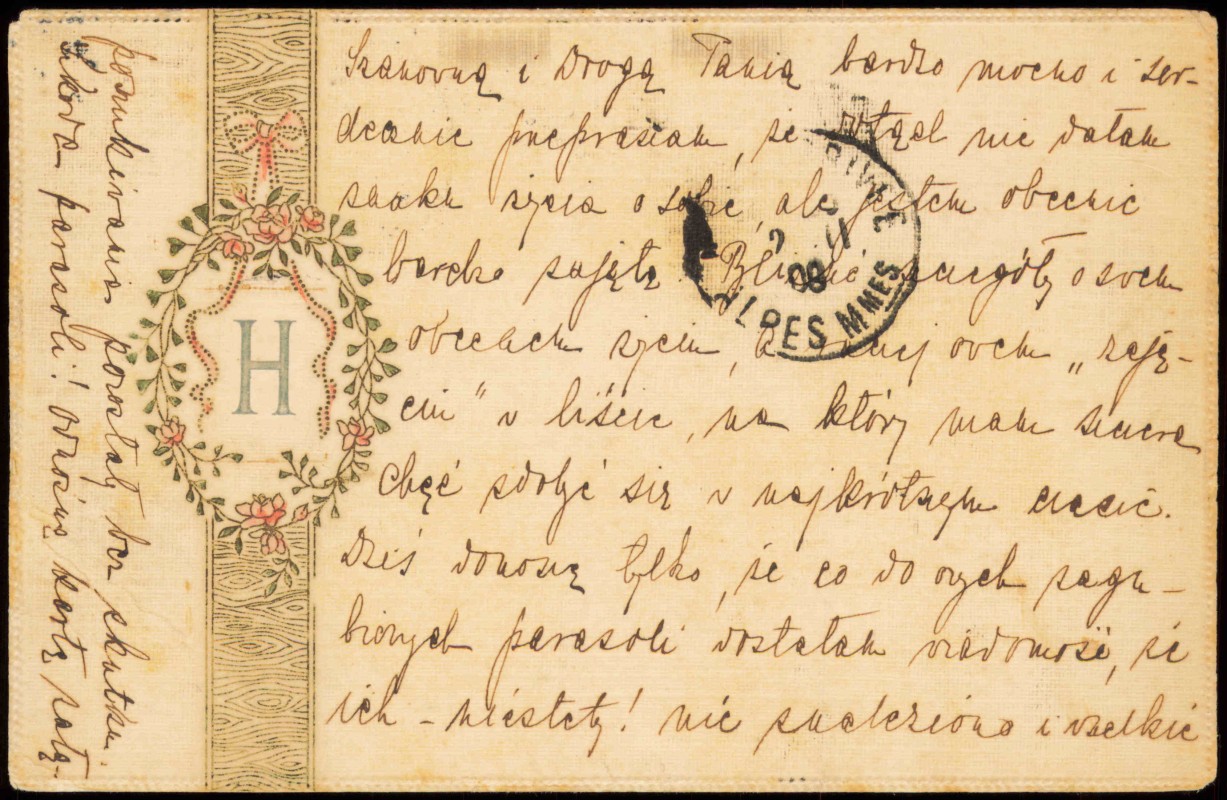 Szanowną i Drogą Panią bardzo mocno i ser-
decznie przepraszam, że dotąd nie dałam
znaku życia o sobie, ale jestem obecnie
bardzo zajętą. Bliższe szczegóły o swem
obecnem życiu, a raczej owem „zaję-
ciu" w liście, na który mam szczerą
chęć zdobyć się w najkrótszym czasie.
Dziś donoszę tylko, że co do owych zagu-
bionych parasoli dostałam wiadomość, że
ich – niestety! nie znaleziono i wszelkie
poszukiwania pozostały bez skutku.
Szkoda parasoli! Odnośną kartę załą-
H
ALPES MMES
08